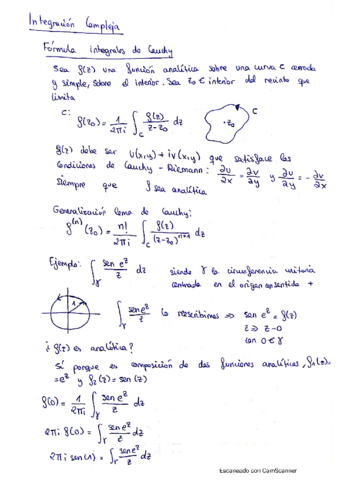 Integración Compleja
Fórmula integrales de Cauchy
Sea f(z) una función analítica sobre una curva C cerrada
y simple, sobre el interior. Sea z₀ ∈ interior del recinto que
limita
C: f(z₀) = 1/2πi ∫_C f(z)/(z-z₀) dz
C
·z₀
f(z) debe ser u(x,y) + iv(x,y) que satisface las
Condiciones de Cauchy - Riemann: ∂u/∂x = ∂v/∂y y ∂u/∂y = -∂v/∂x
siempre que f sea analítica
Generalización lema de Cauchy:
f⁽ⁿ⁾(z₀) = n!/2πi ∫_C f(z)/(z-z₀)ⁿ⁺¹ dz
Ejemplo: ∫_γ sen e^z/z dz siendo γ la circunferencia unitaria
centrada en el origen en sentido +
∫_γ sen e^z/z lo reescribimos ⇒ sen e^z = f(z)
z ⇒ z-0
con 0 ∈ γ
¿f(z) es analítica?
Sí porque es composición de dos funciones analíticas, f₁(z)
= e^z y f₂(z) = sen(z)
f(0) = 1/2πi ∫_γ sen e^z/z dz
2πi f(0) = ∫_γ sen e^z/z dz
2πi sen(1) = ∫_γ sen e^z/z dz
Escaneado con CamScanner